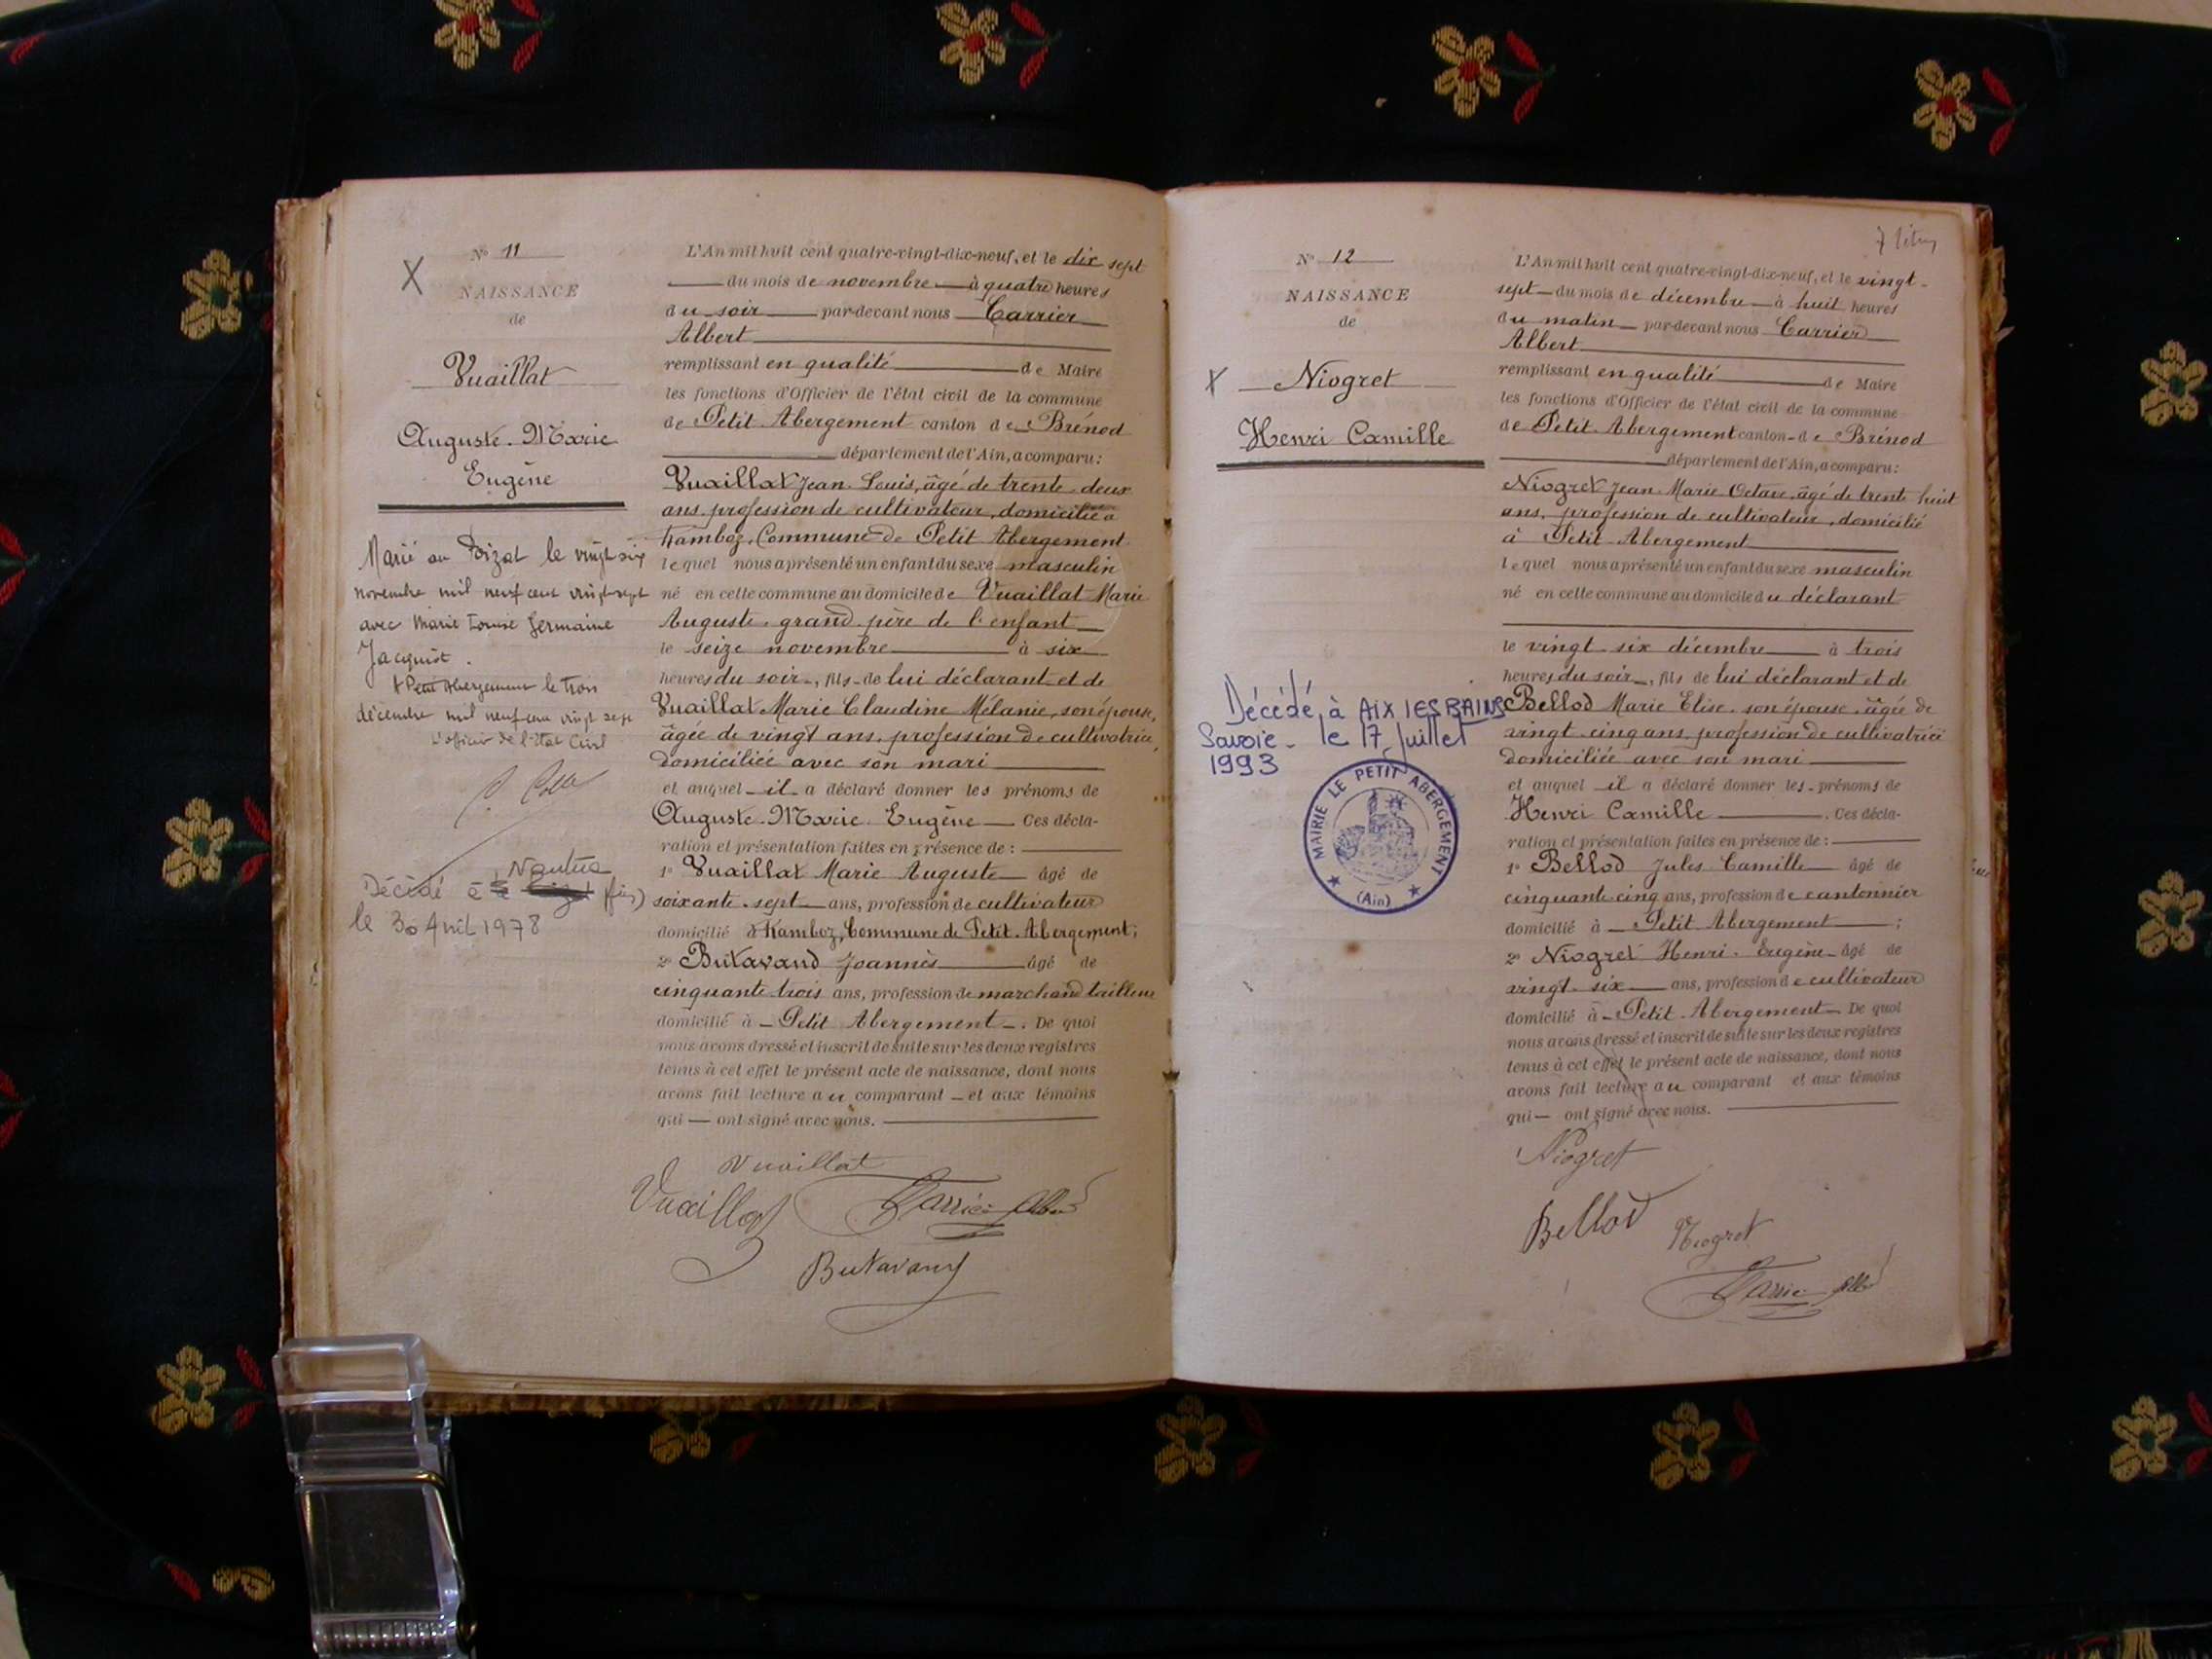 N° 11
NAISSANCE
de
Vuaillat
Auguste-Marie
Eugène
Marié au Poizat le vingt-six
novembre mil neuf cent vingt-sept
avec Marie Louise Germaine
Jacquiot.
A Petit Abergement le trois
décembre mil neuf cent vingt sept
L'officier de l'état Civil
Nantua
Décédé à (Ain)
le 30 Avril 1978
L'An mil huit cent quatre-vingt-dix-neuf, et le dix sept
du mois de novembre à quatre heures
du soir par-devant nous Carrier
Albert
remplissant en qualité de Maire
les fonctions d'Officier de l'état civil de la commune
de Petit-Abergement canton de Brénod
département de l'Ain, a comparu :
Vuaillat Jean-Louis, âgé de trente-deux
ans, profession de cultivateur, domicilié à
Jamboz, Commune de Petit-Abergement
lequel nous a présenté un enfant du sexe masculin
né en cette commune au domicile de Vuaillat Marie
Auguste, grand-père de l'enfant
le seize novembre à six
heures du soir, fils de lui déclarant et de
Vuaillat Marie Claudine Mélanie, son épouse,
âgée de vingt ans, profession de cultivatrice,
domiciliée avec son mari
et auquel il a déclaré donner les prénoms de
Auguste-Marie-Eugène Ces décla-
ration et présentation faites en présence de :
1° Vuaillat Marie Auguste âgé de
soixante-sept ans, profession de cultivateur
domicilié à Jamboz, Commune de Petit-Abergement ;
2° Butavand Joannès âgé de
cinquante trois ans, profession de marchand tailleur
domicilié à Petit Abergement . De quoi
nous avons dressé et inscrit de suite sur les deux registres
tenus à cet effet le présent acte de naissance, dont nous
avons fait lecture au comparant et aux témoins
qui ont signé avec nous.
Vuaillat
Vuaillat Carrier Albert
Butavand
N° 12
NAISSANCE
de
Niogret
Henri Camille
Décédé à AIX LES BAINS
Savoie - le 17 Juillet
1993
MAIRIE LE PETIT ABERGEMENT
(Ain)
L'An mil huit cent quatre-vingt-dix-neuf, et le vingt-
sept du mois de décembre à huit heures
du matin par-devant nous Carrier
Albert
remplissant en qualité de Maire
les fonctions d'Officier de l'état civil de la commune
de Petit-Abergement canton de Brénod
département de l'Ain, a comparu :
Niogret Jean-Marie Octave, âgé de trente huit
ans, profession de cultivateur, domicilié
à Petit-Abergement
lequel nous a présenté un enfant du sexe masculin
né en cette commune au domicile du déclarant
le vingt-six décembre à trois
heures du soir, fils de lui déclarant et de
Bellod Marie Elise, son épouse, âgée de
vingt-cinq ans, profession de cultivatrice
domiciliée avec son mari
et auquel il a déclaré donner les prénoms de
Henri Camille . Ces décla-
ration et présentation faites en présence de :
1° Bellod Jules-Camille âgé de
cinquante cinq ans, profession de cantonnier
domicilié à Petit Abergement ;
2° Niogret Henri-Eugène âgé de
vingt-six ans, profession de cultivateur
domicilié à Petit-Abergement De quoi
nous avons dressé et inscrit de suite sur les deux registres
tenus à cet effet le présent acte de naissance, dont nous
avons fait lecture au comparant et aux témoins
qui ont signé avec nous.
Niogret
Bellod Niogret
Carrier Albert